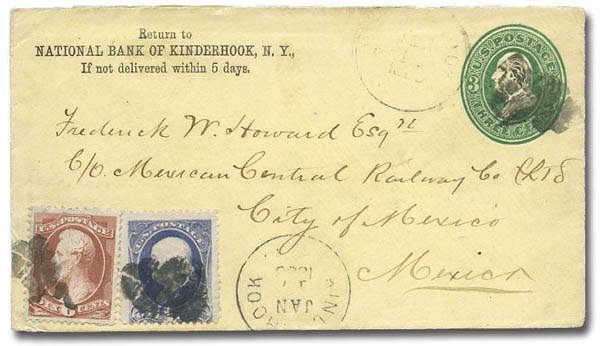 Return to
NATIONAL BANK OF KINDERHOOK, N. Y.,
If not delivered within 5 days.
U.S. POSTAGE
THREE CENTS
Frederick W. Howard Esqr
C/O Mexican Central Railway Co
City of Mexico
Mexico
U.S. POSTAGE
SIX CENTS
U.S. POSTAGE
HOOK
JAN